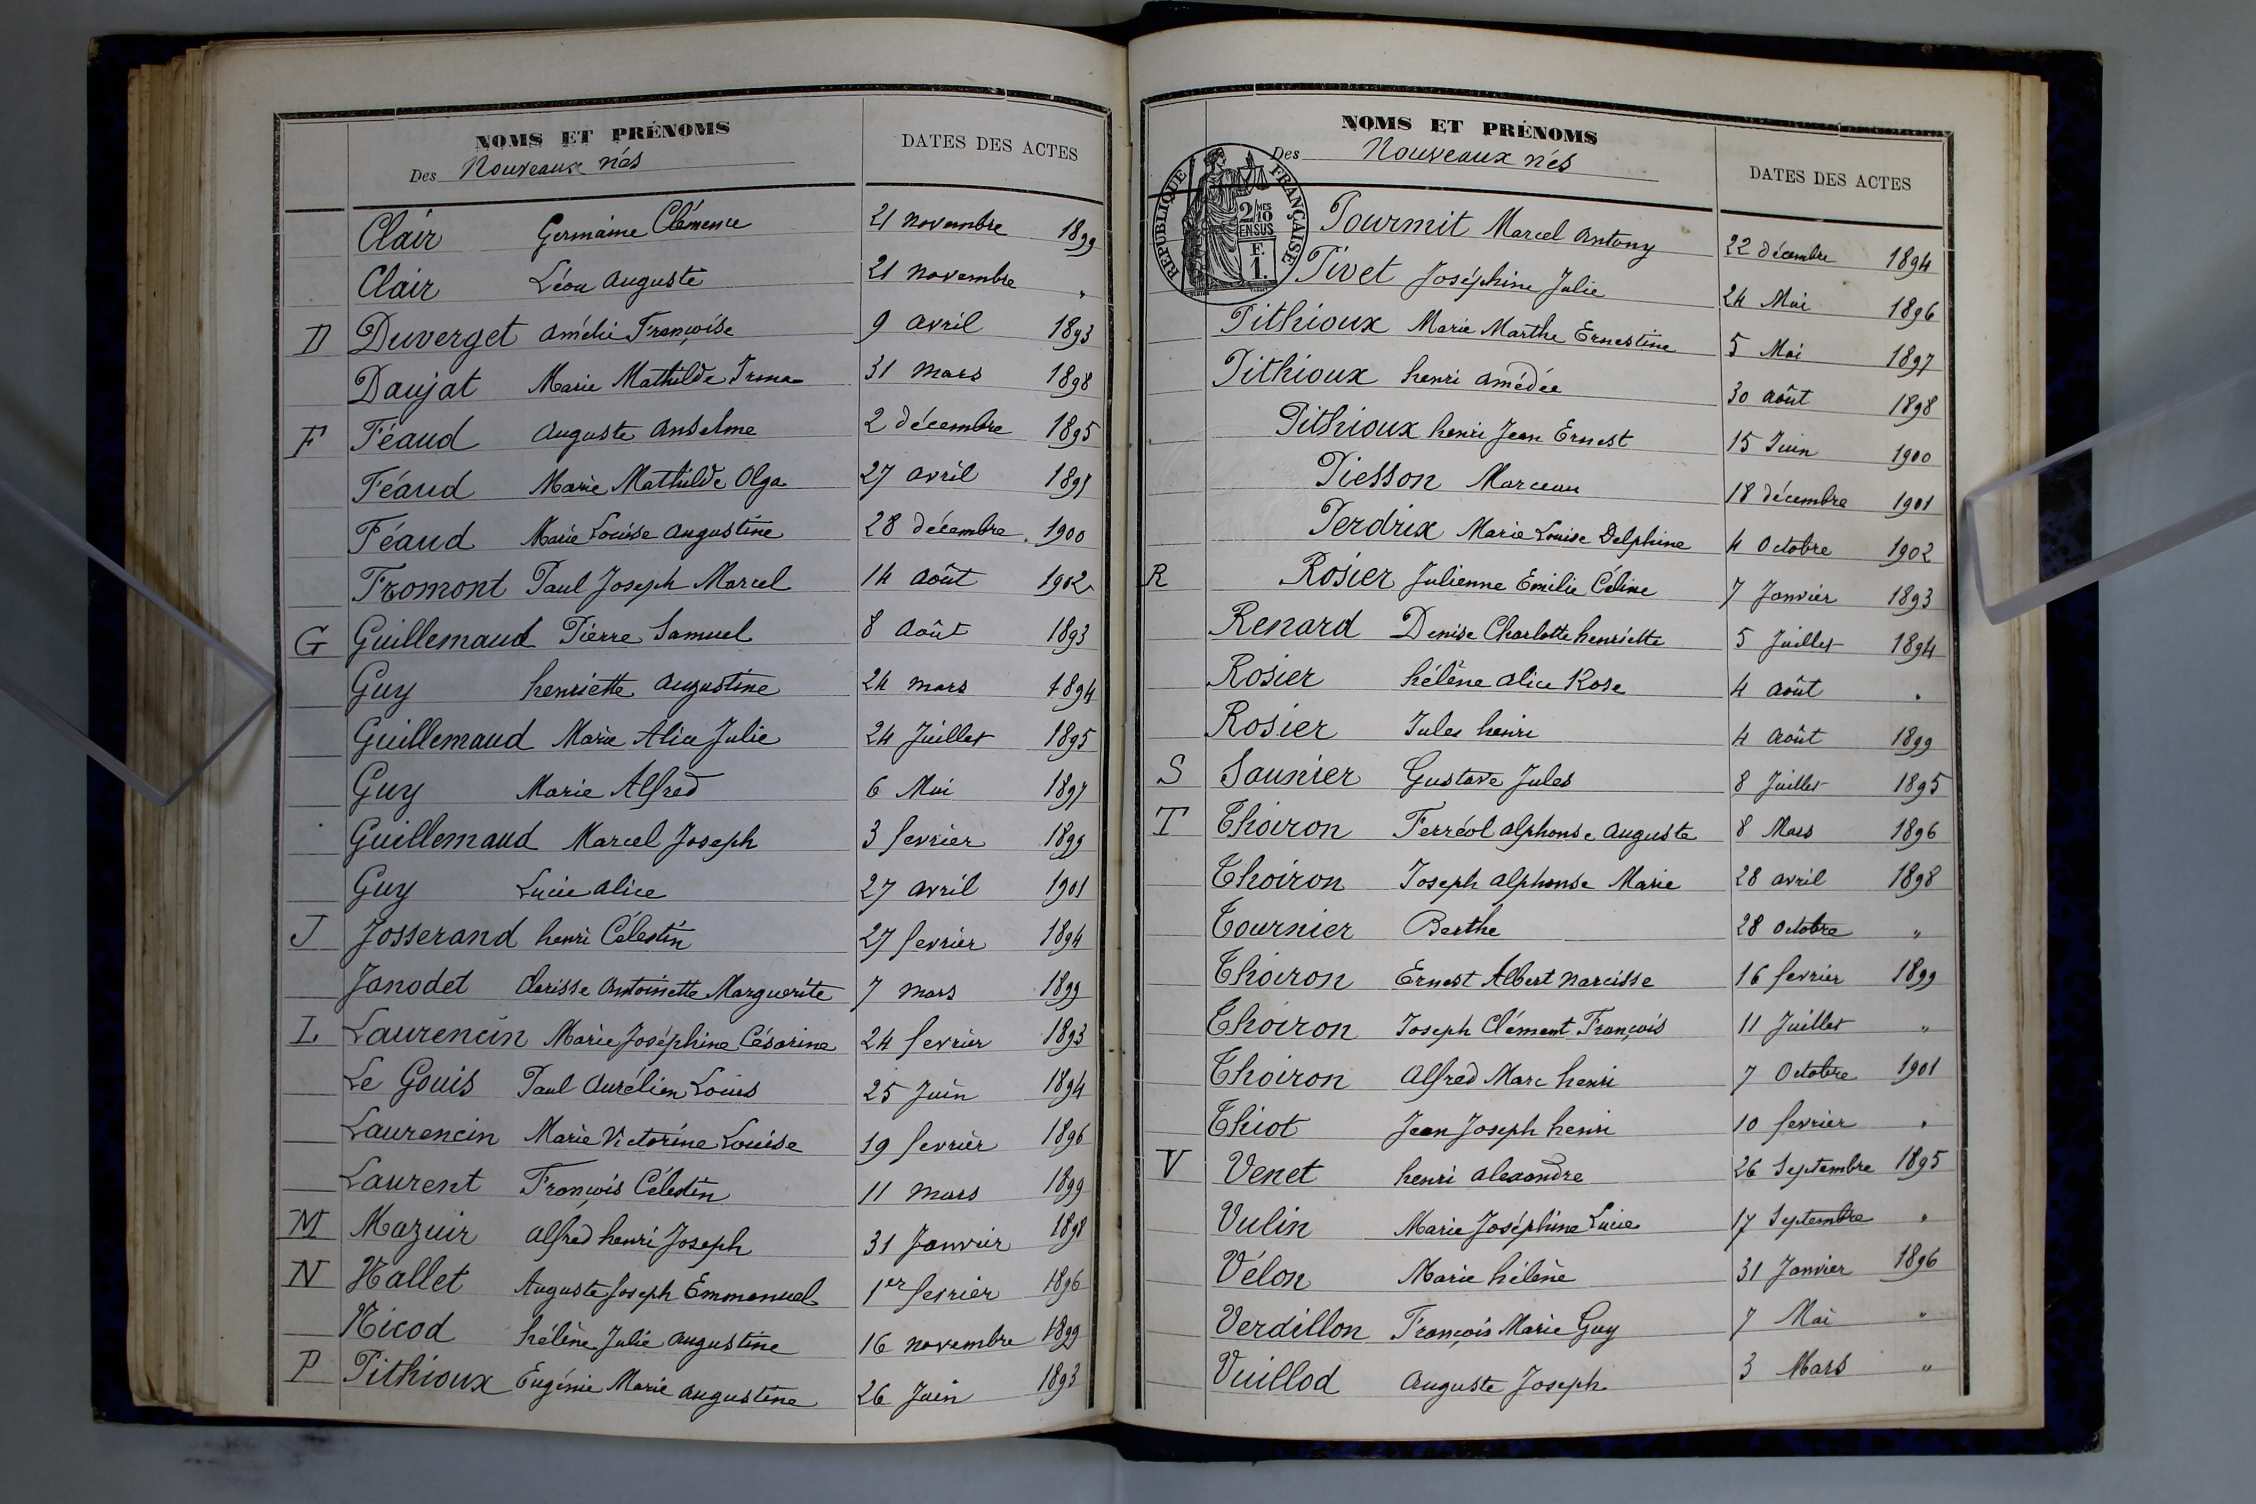 NOMS ET PRÉNOMS
DATES DES ACTES
Des Nouveaux nés
Clair Germaine Clémence 21 novembre 1899
Clair Léon Auguste 21 novembre "
D Duverget Amélie Françoise 9 avril 1893
Daujat Marie Mathilde Irma 31 mars 1898
F Féaud Auguste Anselme 2 décembre 1895
Féaud Marie Mathilde Olga 27 avril
Féaud Marie Louise Augustine 28 décembre 1900
Fromont Paul Joseph Marcel 14 Août 1902
G Guillemaud Pierre Samuel 8 Août 1893
Guy henriette Augustine 24 mars 1894
Guillemaud Marie Alice Julie 24 Juillet 1895
Guy Marie Alfred 6 Mai 1897
Guillemaud Marcel Joseph 3 fevrier 1899
Guy Lucie Alice 27 avril 1901
J Josserand henri Célestin 27 fevrier 1894
Janodet Clarisse Antoinette Marguerite 7 mars 1899
L Laurencin Marie Joséphine Césarine 24 fevrier 1893
Le Gouis Paul Aurélien Louis 25 Juin 1894
Laurencin Marie Victorine Louise 19 fevrier 1896
Laurent François Célestin 11 mars 1899
M Mazuir Alfred henri Joseph 31 Janvier 1898
N Nallet Auguste Joseph Emmanuel 1er fevrier 1896
Nicod hélène Julie Augustine 16 novembre 1899
P Pithioux Eugénie Marie Augustine 26 Juin 1893
NOMS ET PRÉNOMS
Des Nouveaux nés
DATES DES ACTES
RÉPUBLIQUE FRANÇAISE
2/10 MES
EN SUS
F.
1.
Pourmit Marcel Antony 22 décembre 1894
Pivet Joséphine Julie 24 Mai 1896
Pithioux Marie Marthe Ernestine 5 Mai 1897
Pithioux henri Amédée 30 août 1898
Pithioux henri Jean Ernest 15 Juin 1900
Piesson Marceau 18 décembre 1901
Perdrix Marie Louise Delphine 4 Octobre 1902
R Rosier Julienne Emilie Céline 7 Janvier 1893
Renard Denise Charlotte henriette 5 Juillet 1894
Rosier hélène Alice Rose 4 août "
Rosier Jules henri 4 août 1899
S Saunier Gustave Jules 8 Juillet 1895
T Thoiron Ferréol Alphonse Auguste 8 Mars 1896
Thoiron Joseph Alphonse Marie 28 avril 1898
Tournier Berthe 28 octobre "
Thoiron Ernest Albert Narcisse 16 fevrier 1899
Thoiron Joseph Clément François 11 Juillet "
Thoiron Alfred Marc henri 7 Octobre 1901
Thiot Jean Joseph henri 10 fevrier "
V Venet henri Alexandre 26 Septembre 1895
Vulin Marie Joséphine Lucie 17 Septembre "
Vélon Marie hélène 31 Janvier 1896
Verdillon François Marie Guy 7 Mai "
Vuillod Auguste Joseph 3 Mars "